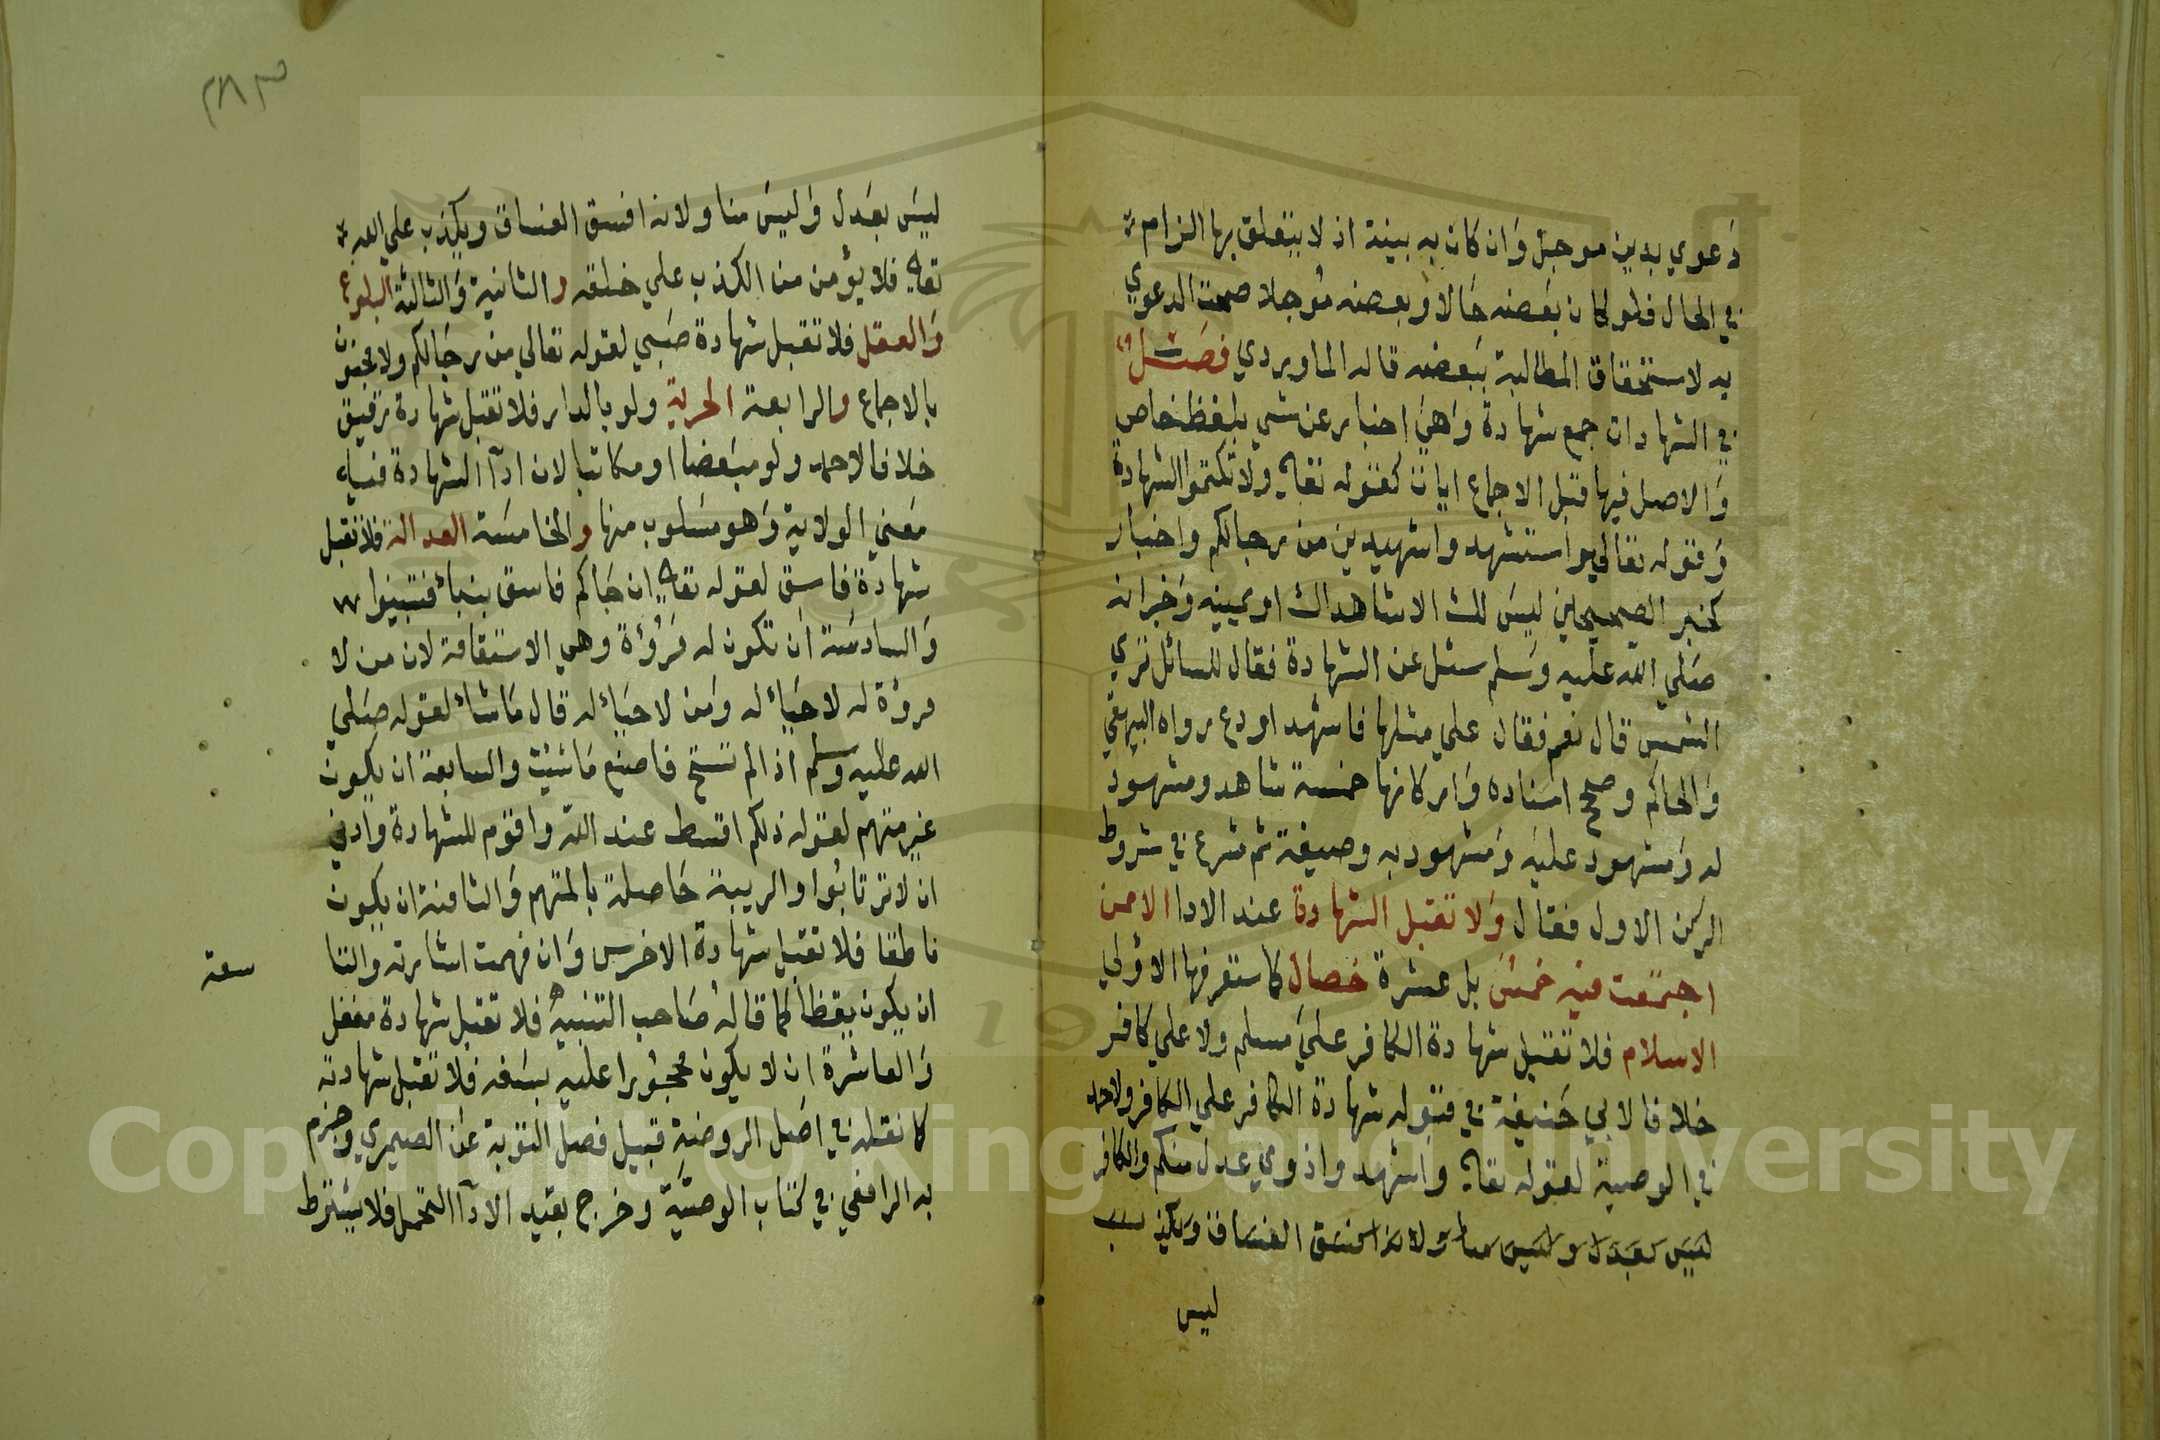 دعوي بدين موجل وان كان به بينة اذ لا يتعلق بها الزام
في الحال فلو كان بعضه حالا وبعضه مؤجلا صحت الدعوي
به لاستحقاق المطالبة ببعضه قاله الماوردي فصل
في الشهادات جمع شهادة وهي اخبار عن شي بلفظ خاص
والاصل فيها قبل الاجماع ايات كقوله تعالي ولا تكتموا الشهادة
وقوله تعالي واستشهدوا شهيدين من رجالكم واخبار
كخبر الصحيحين ليس لك الا شاهداك او يمينه وخبر انه
صلي الله عليه وسلم سئل عن الشهادة فقال للسائل تري
الشمس قال نعم فقال علي مثلها فاشهد او دع رواه البيهقي
والحاكم وصحح اسناده واركانها خمسة شاهد ومشهود
له ومشهود عليه ومشهود به وصيغة ثم شرع في شروط
الركن الاول فقال ولا تقبل الشهادة عند الادا الا ممن
اجتمعت فيه خمس بل عشرة خصال كما ستعرفها الاولي
الاسلام فلا تقبل شهادة الكافر علي مسلم ولا علي كافر
خلافا لابي حنيفة في قبوله شهادة الكافر علي الكافر ولاحمد
في الوصية لقوله تعالي واشهدوا ذوي عدل منكم والكافر
ليس بعدل وليس منا ولانه افسق الفساق ويكذب
ليس
٢٨٣
ليس بعدل وليس منا ولانه افسق الفساق ويكذب علي الله
تعالي فلا يؤمن من الكذب علي خلقه والثانية والثالثة البلوغ
والعقل فلا تقبل شهادة صبي لقوله تعالي من رجالكم ولا مجنون
بالاجماع والرابعة الحرية ولو بالدار فلا تقبل شهادة رقيق
خلافا لاحمد ولو مبعضا او مكاتبا لان ادآ الشهادة فيه
معني الولاية وهو مسلوب منها والخامسة العدالة فلا تقبل
شهادة فاسق لقوله تعالي ان جاكم فاسق بنبأ فتبينوا
والسادسة ان تكون له مروءة وهي الاستقامة لان من لا
مروة له لا حياء له ومن لا حياء له قال ما شاء لقوله صلي
الله عليه وسلم اذا لم تستح فاصنع ما شئت والسابعة ان يكون
غير متهم لقوله ذلكم اقسط عند الله واقوم للشهادة وادني
ان لا ترتابوا والريبة حاصلة بالمتهم والثامنة ان يكون
ناطقا فلا تقبل شهادة الاخرس وان فهمت اشارته والتا
سعة
ان يكون يقظا كما قاله صاحب التنبيه فلا تقبل شهادة مغفل
والعاشرة ان لا يكون محجورا عليه بسفه فلا تقبل شهادته
كما نقله في اصل الروضة قبيل فصل التوبة عن الصيمري وجزم
به الرافعي في كتاب الوصية وخرج بقيد الادآ التحمل فلا يشترط
Copyright © King Saud University